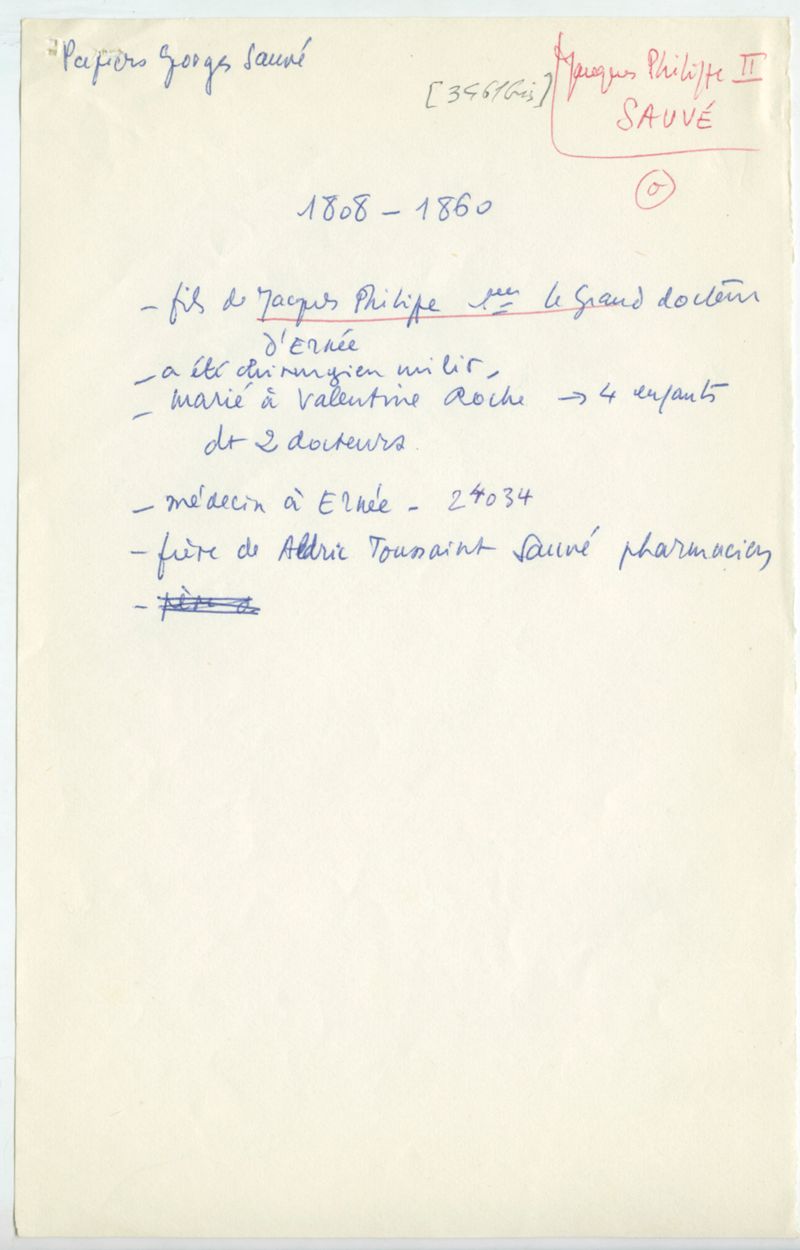 Papiers Georges Sauvé
[3461bis]
Jacques Philippe II
SAUVÉ
1808 - 1860
- fils de Jacques Philippe 1er le Grand docteur
d'Ernée
- a été chirurgien milit.
- marié à Valentine Roche → 4 enfants
dt 2 docteurs
- médecin à Ernée - 24034
- frère de Aldric Toussaint Sauvé pharmacien
- père d